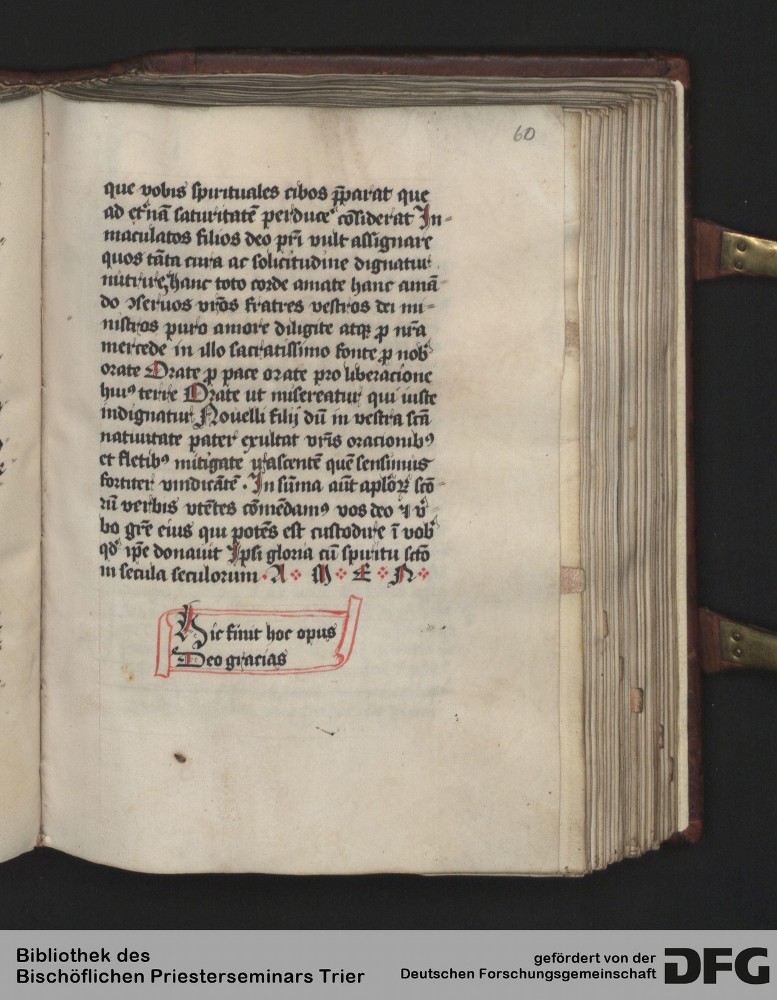 60
que vobis spirituales cibos p̄parat que
ad et̾nā saturitatē perduc̾e cōsiderat In-
maculatos filios deo pr̄i vult assignare
quos tāta cura ac solicitudine dignatur
nutrire, hanc toto corde amate hanc amā-
do ɔseruos vr̄os fratres vestros dei mi-
nistros puro amore diligite atqꝫ ꝓ nr̄a
mercede in illo sacratissimo fonte ꝓ nob̾
orate Orate ꝓ pace orate pro liberacione
huiꝰ terre Orate ut misereatur qui iuste
indignatur Nouelli filij dū in vestra scā
natiuitate pater exultat vr̄is oracionibꝰ
et fletibꝰ mitigate irascentē quē sensimus
fortiter vindicātē. In sūma aūt aplōꝝ scō-
ꝝ verbis vtētes cōmēdamꝰ vos deo ⁊ v̾-
bo gr̄e eius qui potēs est custodire ī vob̾
qd̾ ip̄e donauit Ipsi gloria cū spiritu scō
in secula seculorum. A M E N
Hic finit hoc opus
Deo gracias
Bibliothek des
Bischöflichen Priesterseminars Trier
gefördert von der
Deutschen Forschungsgemeinschaft
DFG